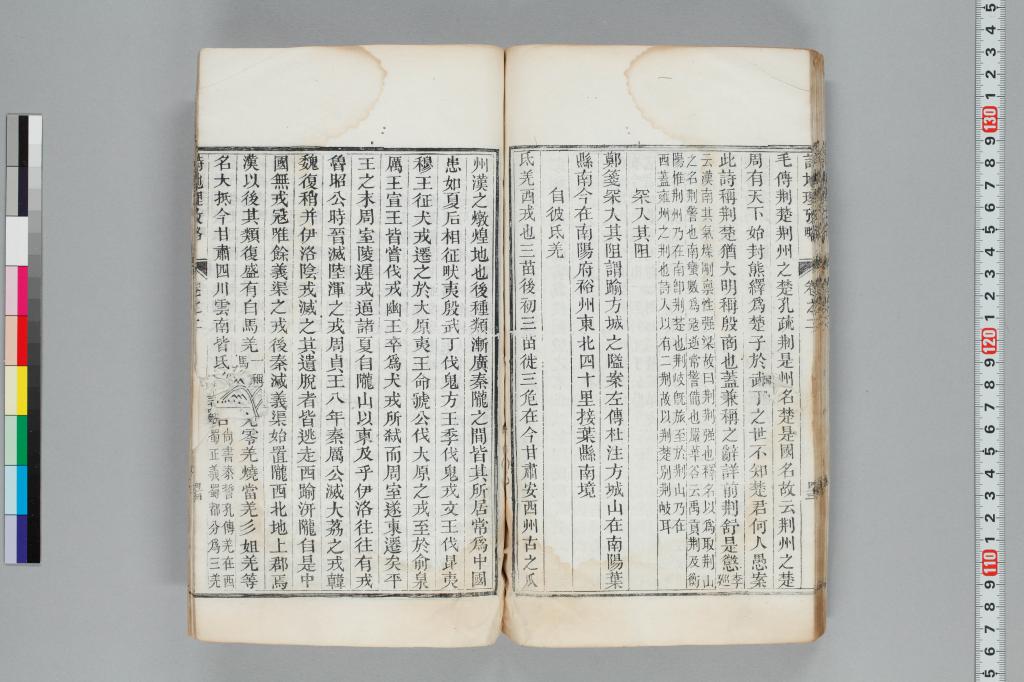 毛傳荆楚荆州之楚孔疏荆是州名楚是國名故云荆州之楚
周有天下始封熊繹爲楚子於武丁之世不知楚君何人愚案
此詩稱荆楚猶大明稱殷商也蓋兼稱之辭詳前荆舒是懲
云漢南其氣燥剛稟性强梁故曰荆荆强也釋名以爲取荆山
之名荆警也南蠻數爲寇逆常警備也嚴華谷云禹貢荆及衡
陽惟荆州乃在南卽荆楚也荆岐旣旅至於荆山乃在
西蓋雍州之荆也詩人以有二荆故以荆楚別荆岐耳
罙入其阻
鄭箋罙入其阻謂踰方城之隘案左傳杜注方城山在南陽葉
縣南今在南陽府裕州東北四十里接葉縣南境
自彼氐羌
氐羌西戎也三苗後初三苗徙三危在今甘肅安西州古之瓜
州漢之燉煌地也後種類漸廣秦隴之間皆其所居常爲中國
患如夏后相征畎夷殷武丁伐鬼方王季伐鬼戎文王伐昆夷
穆王征犬戎遷之於大原夷王命虢公伐大原之戎至於俞泉
厲王宣王皆嘗伐戎幽王卒爲犬戎所弑而周室遂東遷矣平
王之末周室陵遲戎逼諸夏自隴山以東及乎伊洛往往有戎
魯昭公時晉滅陸渾之戎周貞王八年秦厲公滅大荔之戎韓
魏復稍并伊洛陰戎滅之其遺脫者皆逃走西踰汧隴自是中
國無戎寇唯餘義渠之戎後秦滅義渠始置隴西北地上郡焉
漢以後其類復盛有白馬羌 零羌燒當羌彡姐羌等
名大抵今甘肅四川雲南皆氐
尚書泰誓孔傳羌在西
蜀正義蜀都分爲三羌